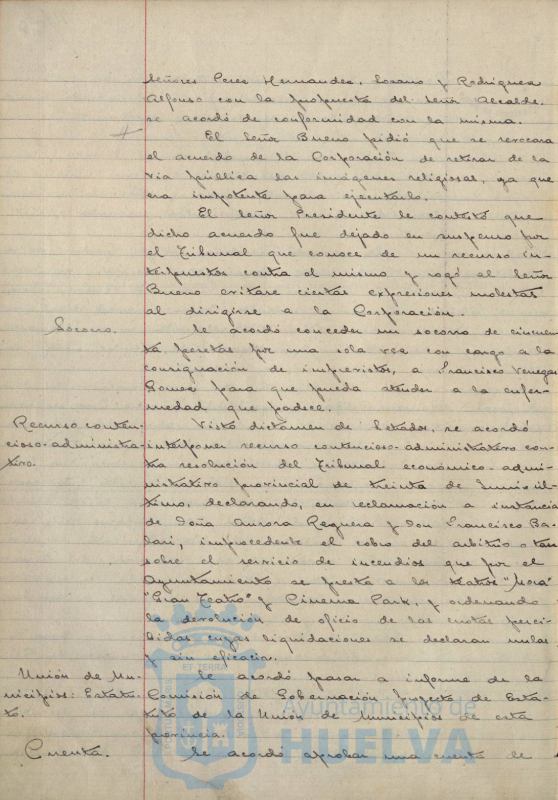 Señores Perez Hernandez, Lozano y Rodriguez
Alfonso con la propuesta del Señor Alcalde,
se acordó de conformidad con la misma.
El Señor Bueno pidió que se revocara
el acuerdo de la Corporación de retirar de la
via pública las imágenes religiosas, ya que
era impotente para ejecutarlo.
El Señor Presidente le contestó que
dicho acuerdo fue dejado en suspenso por
el Tribunal que conoce de un recurso in-
terpuestos contra el mismo y rogó al Señor
Bueno evitare ciertas expresiones molestas
al dirigirse a la Corporación.
Socorro.
Se acordó conceder un socorro de cincuen
ta pesetas por una sola vez con cargo a la
consignación de imprevistos, a Francisco Venegas
Gomez para que pueda atender a la enfer-
medad que padece.
Recurso conten-
cioso-administra-
tivo.
Visto dictamen de Letrados, se acordó
interponer recurso contencioso-administrativo con-
tra resolución del Tribunal económico-admi-
nistrativo provincial de treinta de Junio úl-
timo, declarando, en reclamación a instancia
de Doña Aurora Reguera y Don Francisco Ba-
lari, improcedente el cobro del arbitrio o tasa
sobre el servicio de incendios que por el
Ayuntamiento se presta a los teatros "Mora"
"Gran Teatro" y Cinema Park, y ordenando
la devolución de oficio de las cuotas perci-
bidas cuyas liquidaciones se declaran nulas
y sin eficacia.
Unión de Mu-
nicipios: Estatu-
to.
Se acordó pasar a informe de la
Comisión de Gobernación proyecto de Esta-
tuto de la Unión de Municipios de esta
provincia.
Cuenta.
Se acordó aprobar una cuenta de
ET TERRA
Ayuntamiento de
HUELVA